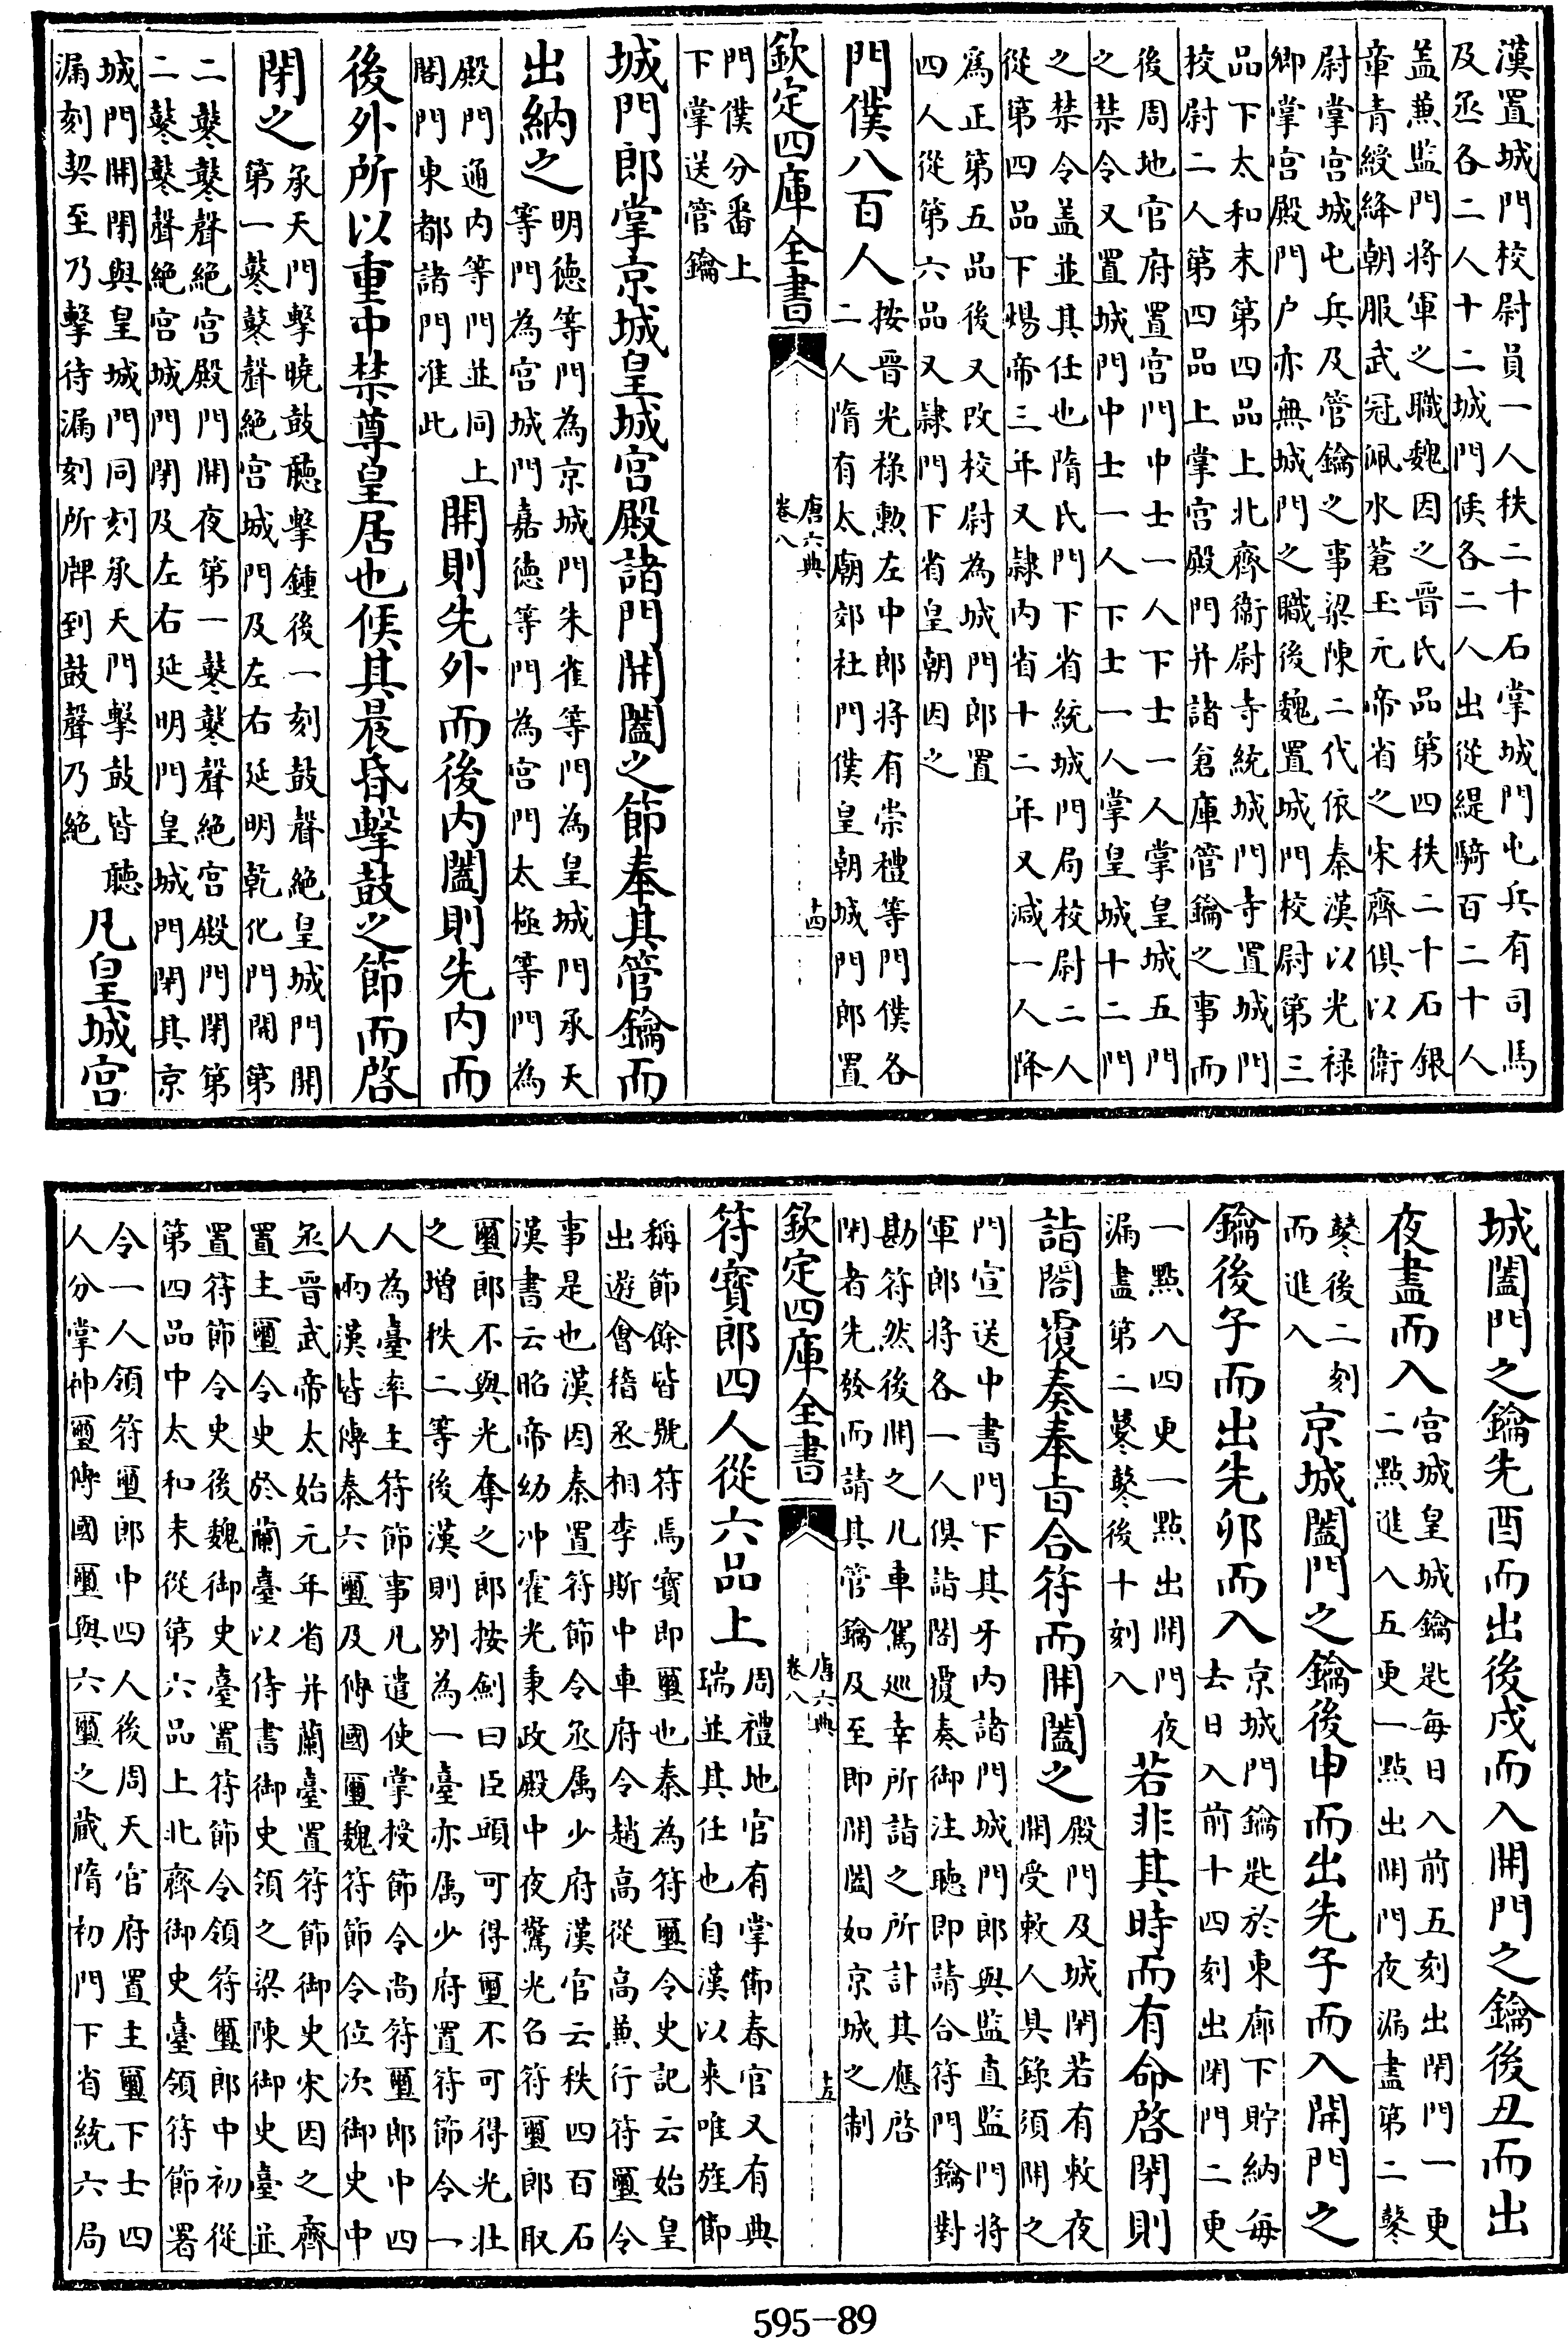 漢置城門校尉員一人秩二十石掌城門屯兵有司馬
及丞各二人十二城門候各二人出從緹騎百二十人
盖兼監門将軍之職魏因之晉氏品第四秩二十石銀
章青綬絳朝服武冠佩水蒼玉元帝省之宋齊俱以衛
尉掌宫城屯兵及管鑰之事梁陳二代依秦漢以光禄
卿掌宫殿門户亦無城門之職後魏置城門校尉第三
品下太和末第四品上北齊衛尉寺統城門寺置城門
校尉二人第四品上掌宫殿門并諸倉庫管鑰之事而
後周地官府置宫門中士一人下士一人掌皇城五門
之禁令又置城門中士一人下士一人掌皇城十二門
之禁令盖並其任也隋氏門下省統城門局校尉二人
從第四品下煬帝三年又隷内省十二年又減一人降
為正第五品後又改校尉為城門郎置
四人從第六品又隷門下省皇朝因之
門僕八百人按晉光禄勲左中郎将有崇禮等門僕各
二人隋有太廟郊社門僕皇朝城門郎置
欽定四庫全書
唐六典
卷八
十四
門僕分番上
下掌送管鑰
城門郎掌京城皇城宫殿諸門開闔之節奉其管鑰而
出納之明徳等門為京城門朱雀等門為皇城門承天
等門為宫城門嘉徳等門為宫門太極等門為
殿門通内等門並同上
閤門東都諸門准此
開則先外而後内闔則先内而
後外所以重中禁尊皇居也候其晨昏擊鼓之節而啓
閉之承天門擊曉鼓聽擊鍾後一刻鼓聲絶皇城門開
第一鼕鼕聲絶宫城門及左右延明乾化門開第
二鼕鼕聲絶宫殿門開夜第一鼕鼕聲絶宫殿門閉第
二鼕鼕聲絶宫城門閉及左右延明門皇城門閉其京
城門開閉與皇城門同刻承天門擊鼓皆聽
漏刻契至乃擊待漏刻所牌到鼓聲乃絶
凡皇城宫
城闔門之鑰先酉而出後戌而入開門之鑰後丑而出
夜盡而入宫城皇城鑰匙每日入前五刻出閉門一更
二點進入五更一點出開門夜漏盡第二鼕
鼕後二刻
而進入
京城闔門之鑰後申而出先子而入開門之
鑰後子而出先卯而入京城門鑰匙於東廊下貯納每
去日入前十四刻出閉門二更
一點入四更一點出開門夜
漏盡第二鼕鼕後十刻入
若非其時而有命啓閉則
詣閤覆奏奉㫖合符而開闔之殿門及城閉若有敕夜
開受敕人具錄須開之
門宣送中書門下其牙内諸門城門郎與監直監門将
軍郎将各一人俱詣閤覆奏御注聽即請合符門鑰對
勘符然後開之凡車駕巡幸所詣之所計其應啓
閉者先發而請其管鑰及至即開闔如京城之制
欽定四庫全書
唐六典
卷八
十五
符寳郎四人從六品上周禮地官有掌節春官又有典
瑞並其任也自漢以来唯旌節
稱節餘皆號符焉寳即璽也秦為符璽令史記云始皇
出遊會稽丞相李斯中車府令趙高從高兼行符璽令
事是也漢因秦置符節令丞属少府漢官云秩四百石
漢書云昭帝幼冲霍光秉政殿中夜驚光召符璽郎取
璽郎不與光奪之郎按劍曰臣頭可得璽不可得光壯
之增秩二等後漢則别為一臺亦属少府置符節令一
人為臺率主符節事凡遣使掌授節令尚符璽郎中四
人兩漢皆傳秦六璽及傳國璽魏符節令位次御史中
丞晉武帝太始元年省并蘭臺置符節御史宋因之齊
置主璽令史於蘭臺以侍書御史領之梁陳御史臺並
置符節令史後魏御史臺置符節令領符璽郎中初從
第四品中太和末從第六品上北齊御史臺領符節署
令一人領符璽郎中四人後周天官府置主璽下士四
人分掌神璽傳國璽與六璽之蔵隋初門下省統六局
595-89